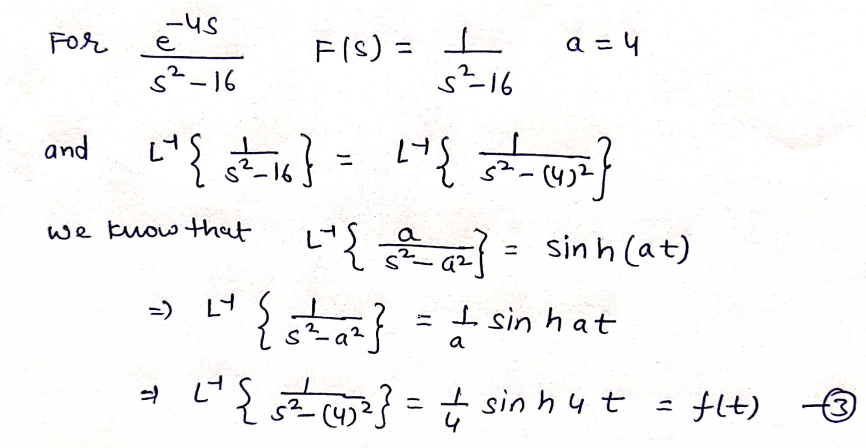 For e^{-4s}/(s²-16)   F(s) = 1/(s²-16)   a = 4
and L⁻¹{ 1/(s²-16) } = L⁻¹{ 1/(s²-(4)²) }
we know that L⁻¹{ a/(s²-a²) } = sinh(at)
=> L⁻¹{ 1/(s²-a²) } = 1/a sin hat
=> L⁻¹{ 1/(s²-(4)²) } = 1/4 sin h 4 t = f(t) —③